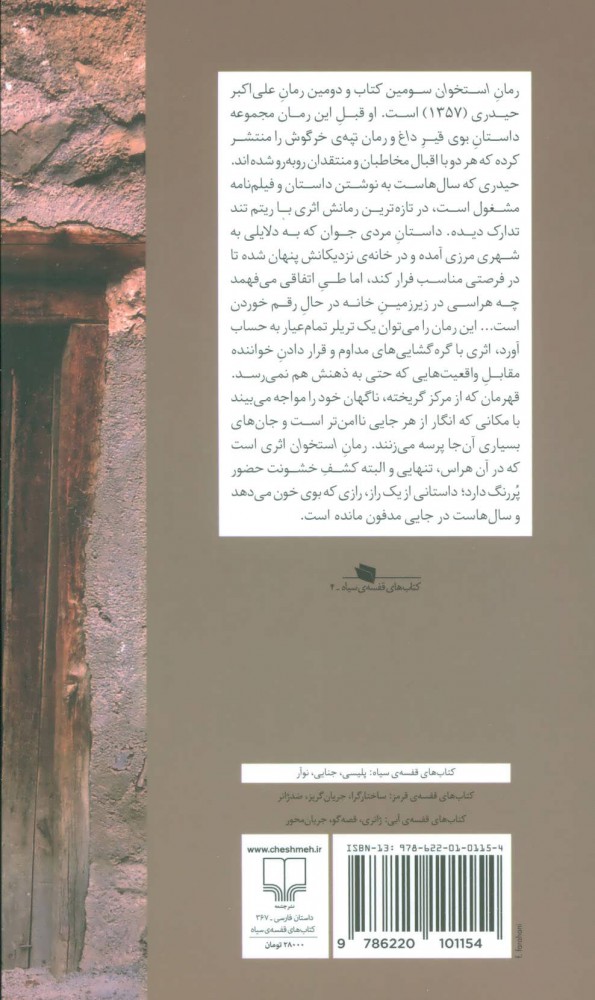 رمانِ استخوان سومین کتاب و دومین رمانِ علی‌اکبر
حیدری (۱۳۵۷) است. او قبلِ این رمان مجموعه
داستانِ بوی قیرِ داغ و رمان تپه‌ی خرگوش را منتشر
کرده که هر دو با اقبال مخاطبان و منتقدان روبه‌رو شده‌اند.
حیدری که سال‌هاست به نوشتن داستان و فیلم‌نامه
مشغول است، در تازه‌ترین رمانش اثری با ریتم تند
تدارک دیده. داستانِ مردی جوان که به دلایلی به
شهری مرزی آمده و در خانه‌ی نزدیکانش پنهان شده تا
در فرصتی مناسب فرار کند، اما طیِ اتفاقی می‌فهمد
چه هراسی در زیرزمینِ خانه در حالِ رقم خوردن
است... این رمان را می‌توان یک تریلر تمام‌عیار به حساب
آورد، اثری با گره‌گشایی‌های مداوم و قرار دادنِ خواننده
مقابلِ واقعیت‌هایی که حتی به ذهنش هم نمی‌رسد.
قهرمان که از مرکز گریخته، ناگهان خود را مواجه می‌بیند
با مکانی که انگار از هر جایی ناامن‌تر است و جان‌های
بسیاری آن‌جا پرسه می‌زنند. رمانِ استخوان اثری است
که در آن هراس، تنهایی و البته کشفِ خشونت حضور
پُررنگ دارد؛ داستانی از یک راز، رازی که بوی خون می‌دهد
و سال‌هاست در جایی مدفون مانده است.
کتاب‌های قفسه‌ی سیاه ـ ۴
کتاب‌های قفسه‌ی سیاه: پلیسی، جنایی، نوآر
کتاب‌های قفسه‌ی قرمز: ساختارگرا، جریان‌گریز، ضدژانر
کتاب‌های قفسه‌ی آبی: ژانری، قصه‌گو، جریان‌محور
www.cheshmeh.ir
نشرچشمه
داستان فارسی ـ ۳۶۷
کتاب‌های قفسه‌ی سیاه
۲۸۰۰۰ تومان
ISBN-13: 978-622-01-0115-4
9 786220 101154